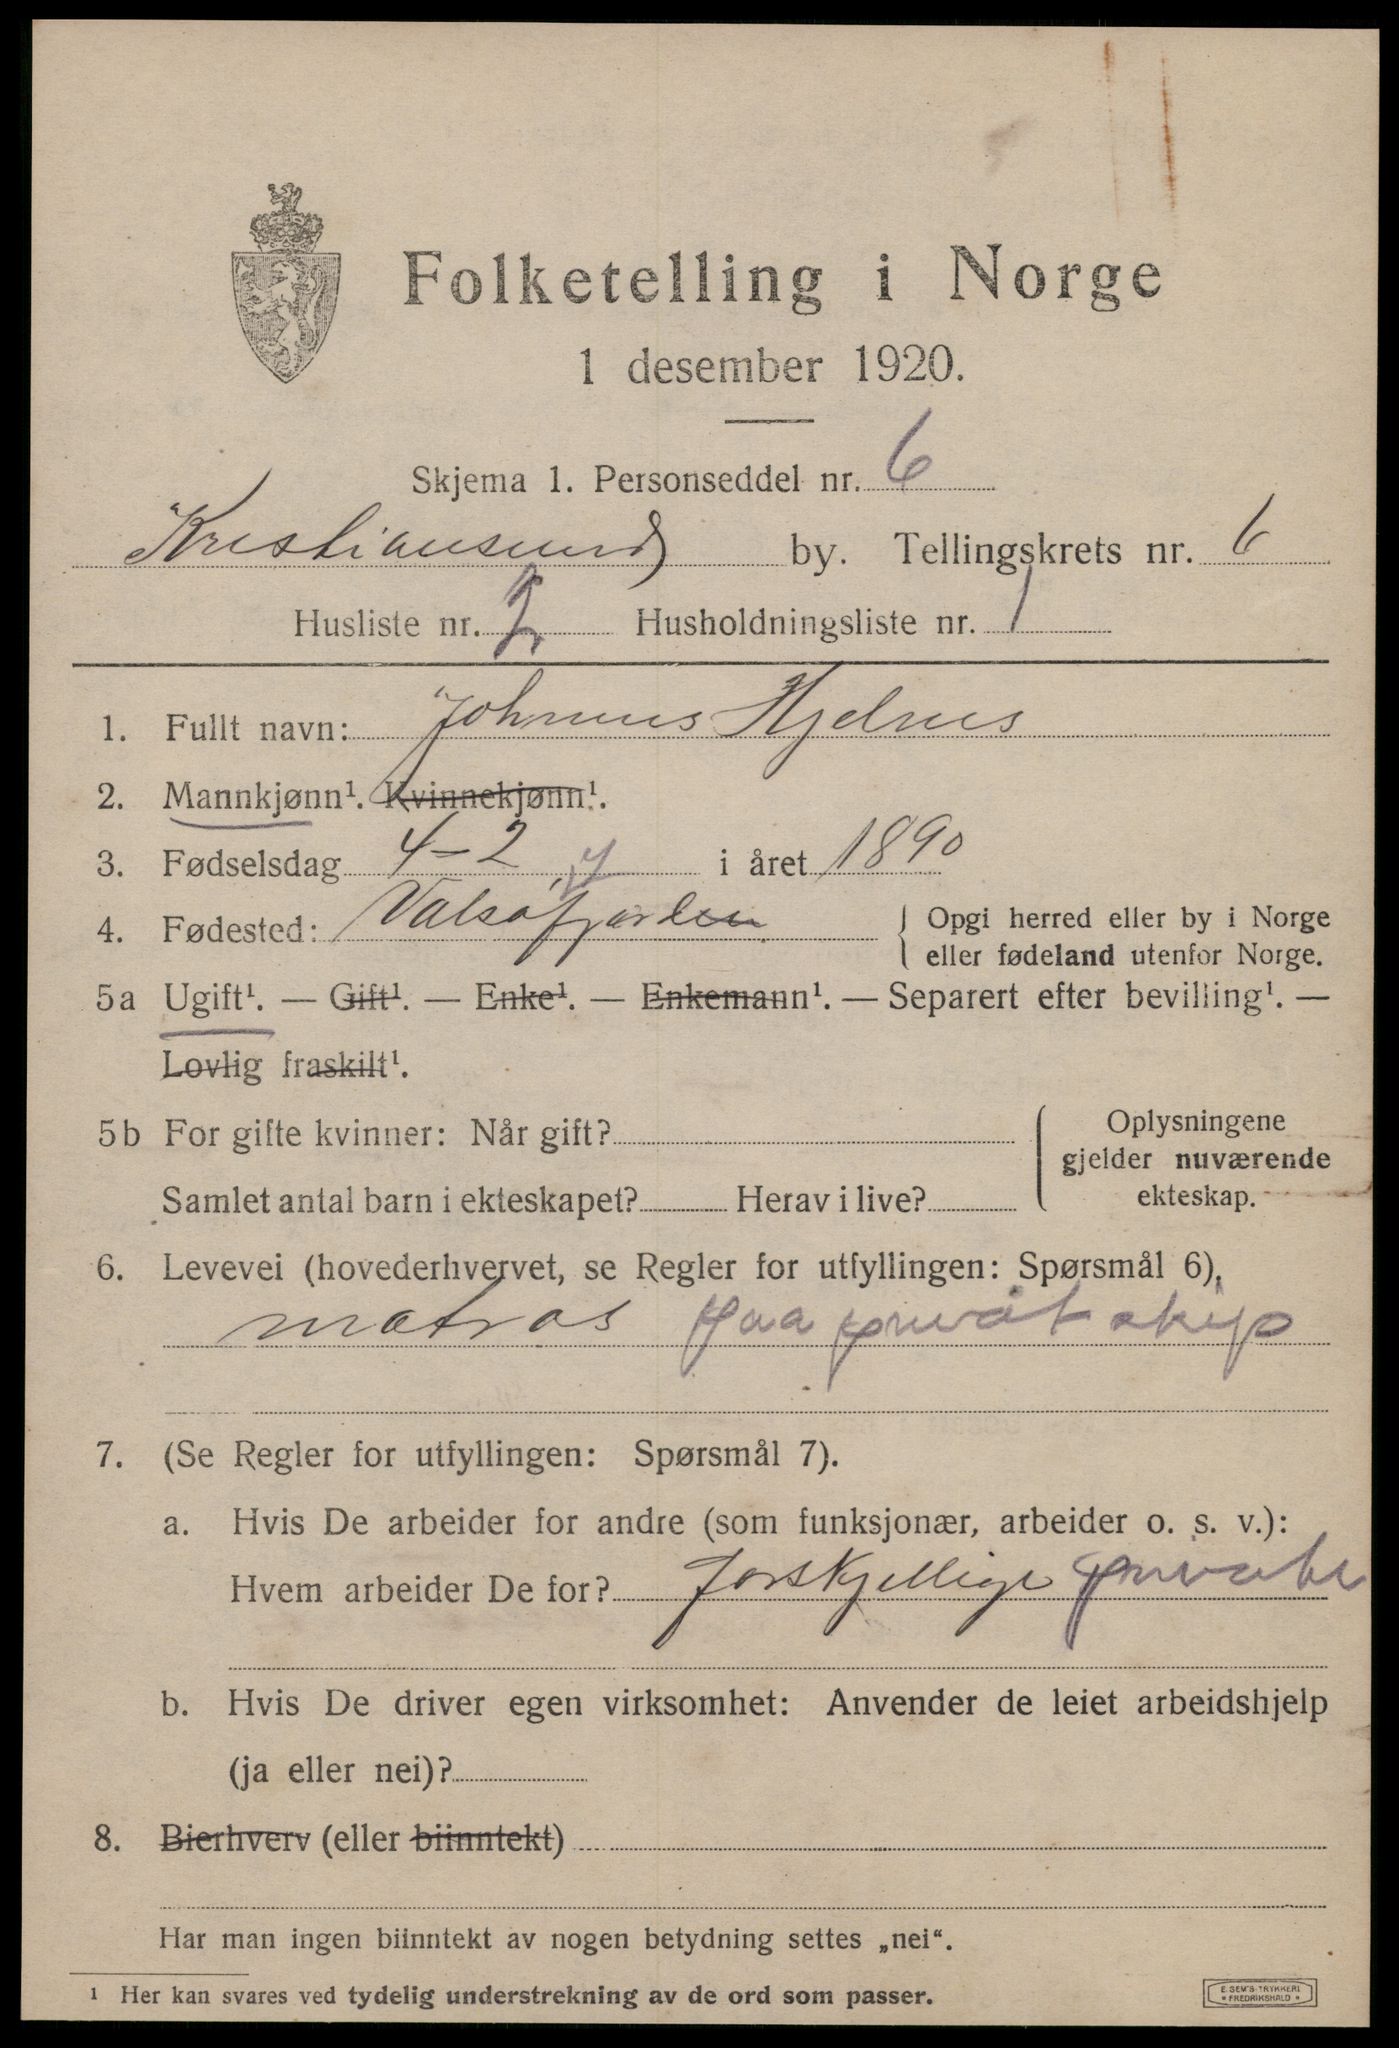 Folketelling i Norge
1 desember 1920.
Skjema 1. Personseddel nr. 6
Kristiansund by. Tellingskrets nr. 6
Husliste nr. 2 Husholdningsliste nr. 1
1. Fullt navn: Johannes Hjelnes
2. Mannkjønn¹. Kvinnekjønn¹.
3. Fødselsdag 4-2 i året 1890
4. Fødested: Valsøfjorden
Opgi herred eller by i Norge
eller fødeland utenfor Norge.
5a Ugift¹. — Gift¹. — Enke¹. — Enkemann¹. — Separert efter bevilling¹. —
Lovlig fraskilt¹.
5b For gifte kvinner: Når gift?
Samlet antal barn i ekteskapet? Herav i live?
Oplysningene
gjelder nuværende
ekteskap.
6. Levevei (hovederhvervet, se Regler for utfyllingen: Spørsmål 6).
matros paa privat skip
7. (Se Regler for utfyllingen: Spørsmål 7).
a. Hvis De arbeider for andre (som funksjonær, arbeider o. s. v.):
Hvem arbeider De for? forskjellige private
b. Hvis De driver egen virksomhet: Anvender de leiet arbeidshjelp
(ja eller nei)?
8. Bierhverv (eller biinntekt)
Har man ingen biinntekt av nogen betydning settes „nei“.
¹ Her kan svares ved tydelig understrekning av de ord som passer.
E. SEM'S TRYKKERI
* FREDRIKSHALD *